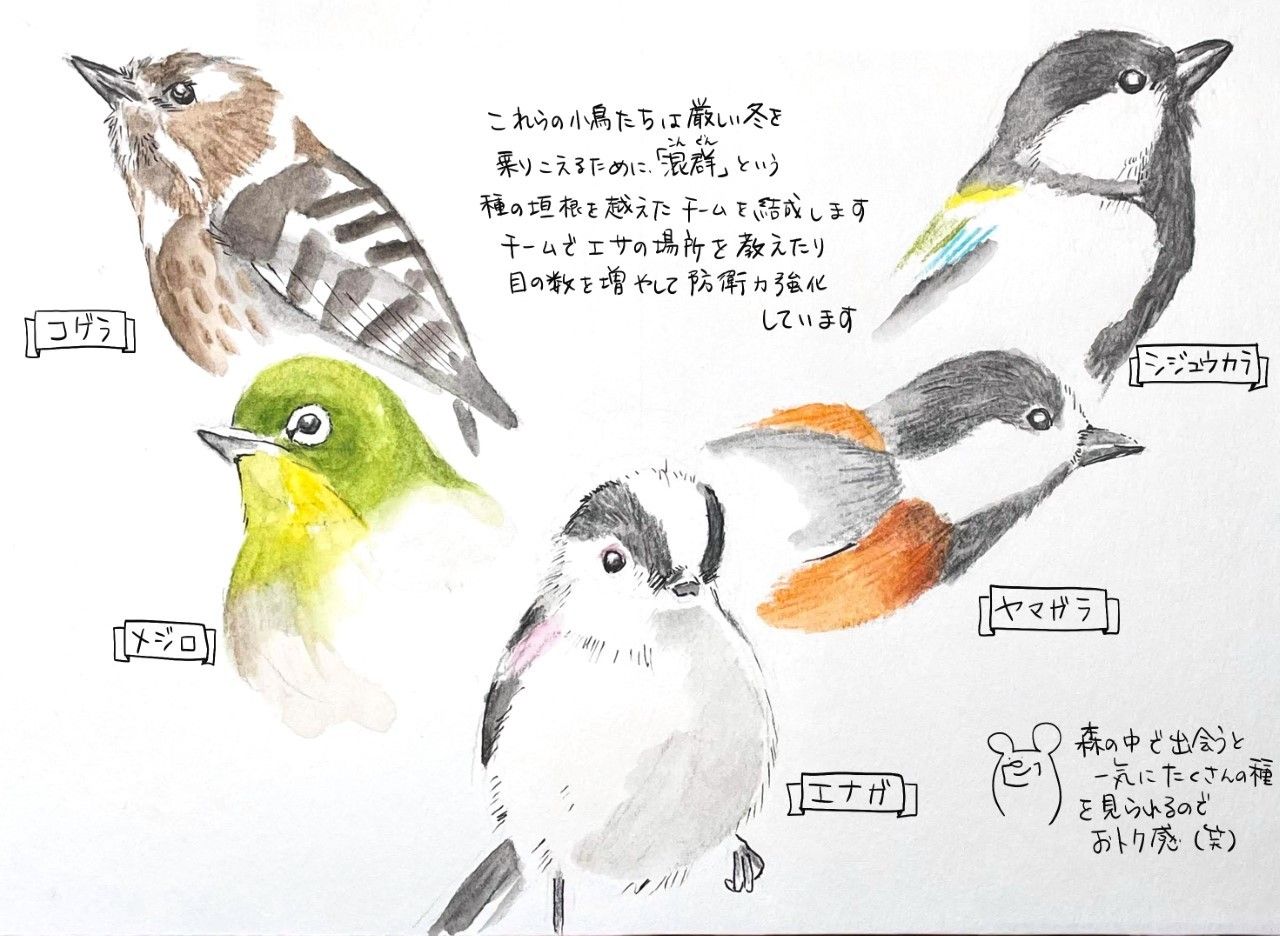 これらの小鳥たちは厳しい冬を
乗りこえるために、「混群」という
こん ぐん
種の垣根を越えたチームを結成します
チームでエサの場所を教えたり
目の数を増やして防衛力強化
しています
コゲラ
シジュウカラ
メジロ
ヤマガラ
エナガ
森の中で出会うと
一気にたくさんの種
を見られるので
おトク感(笑)